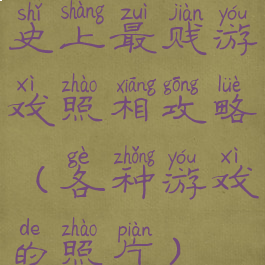 shǐ shàng zuì jiàn yóu
史上最贱游
xì zhào xiāng gōng lüè
戏照相攻略
gè zhǒng yóu xì
（各种游戏
de zhào piàn
的照片）